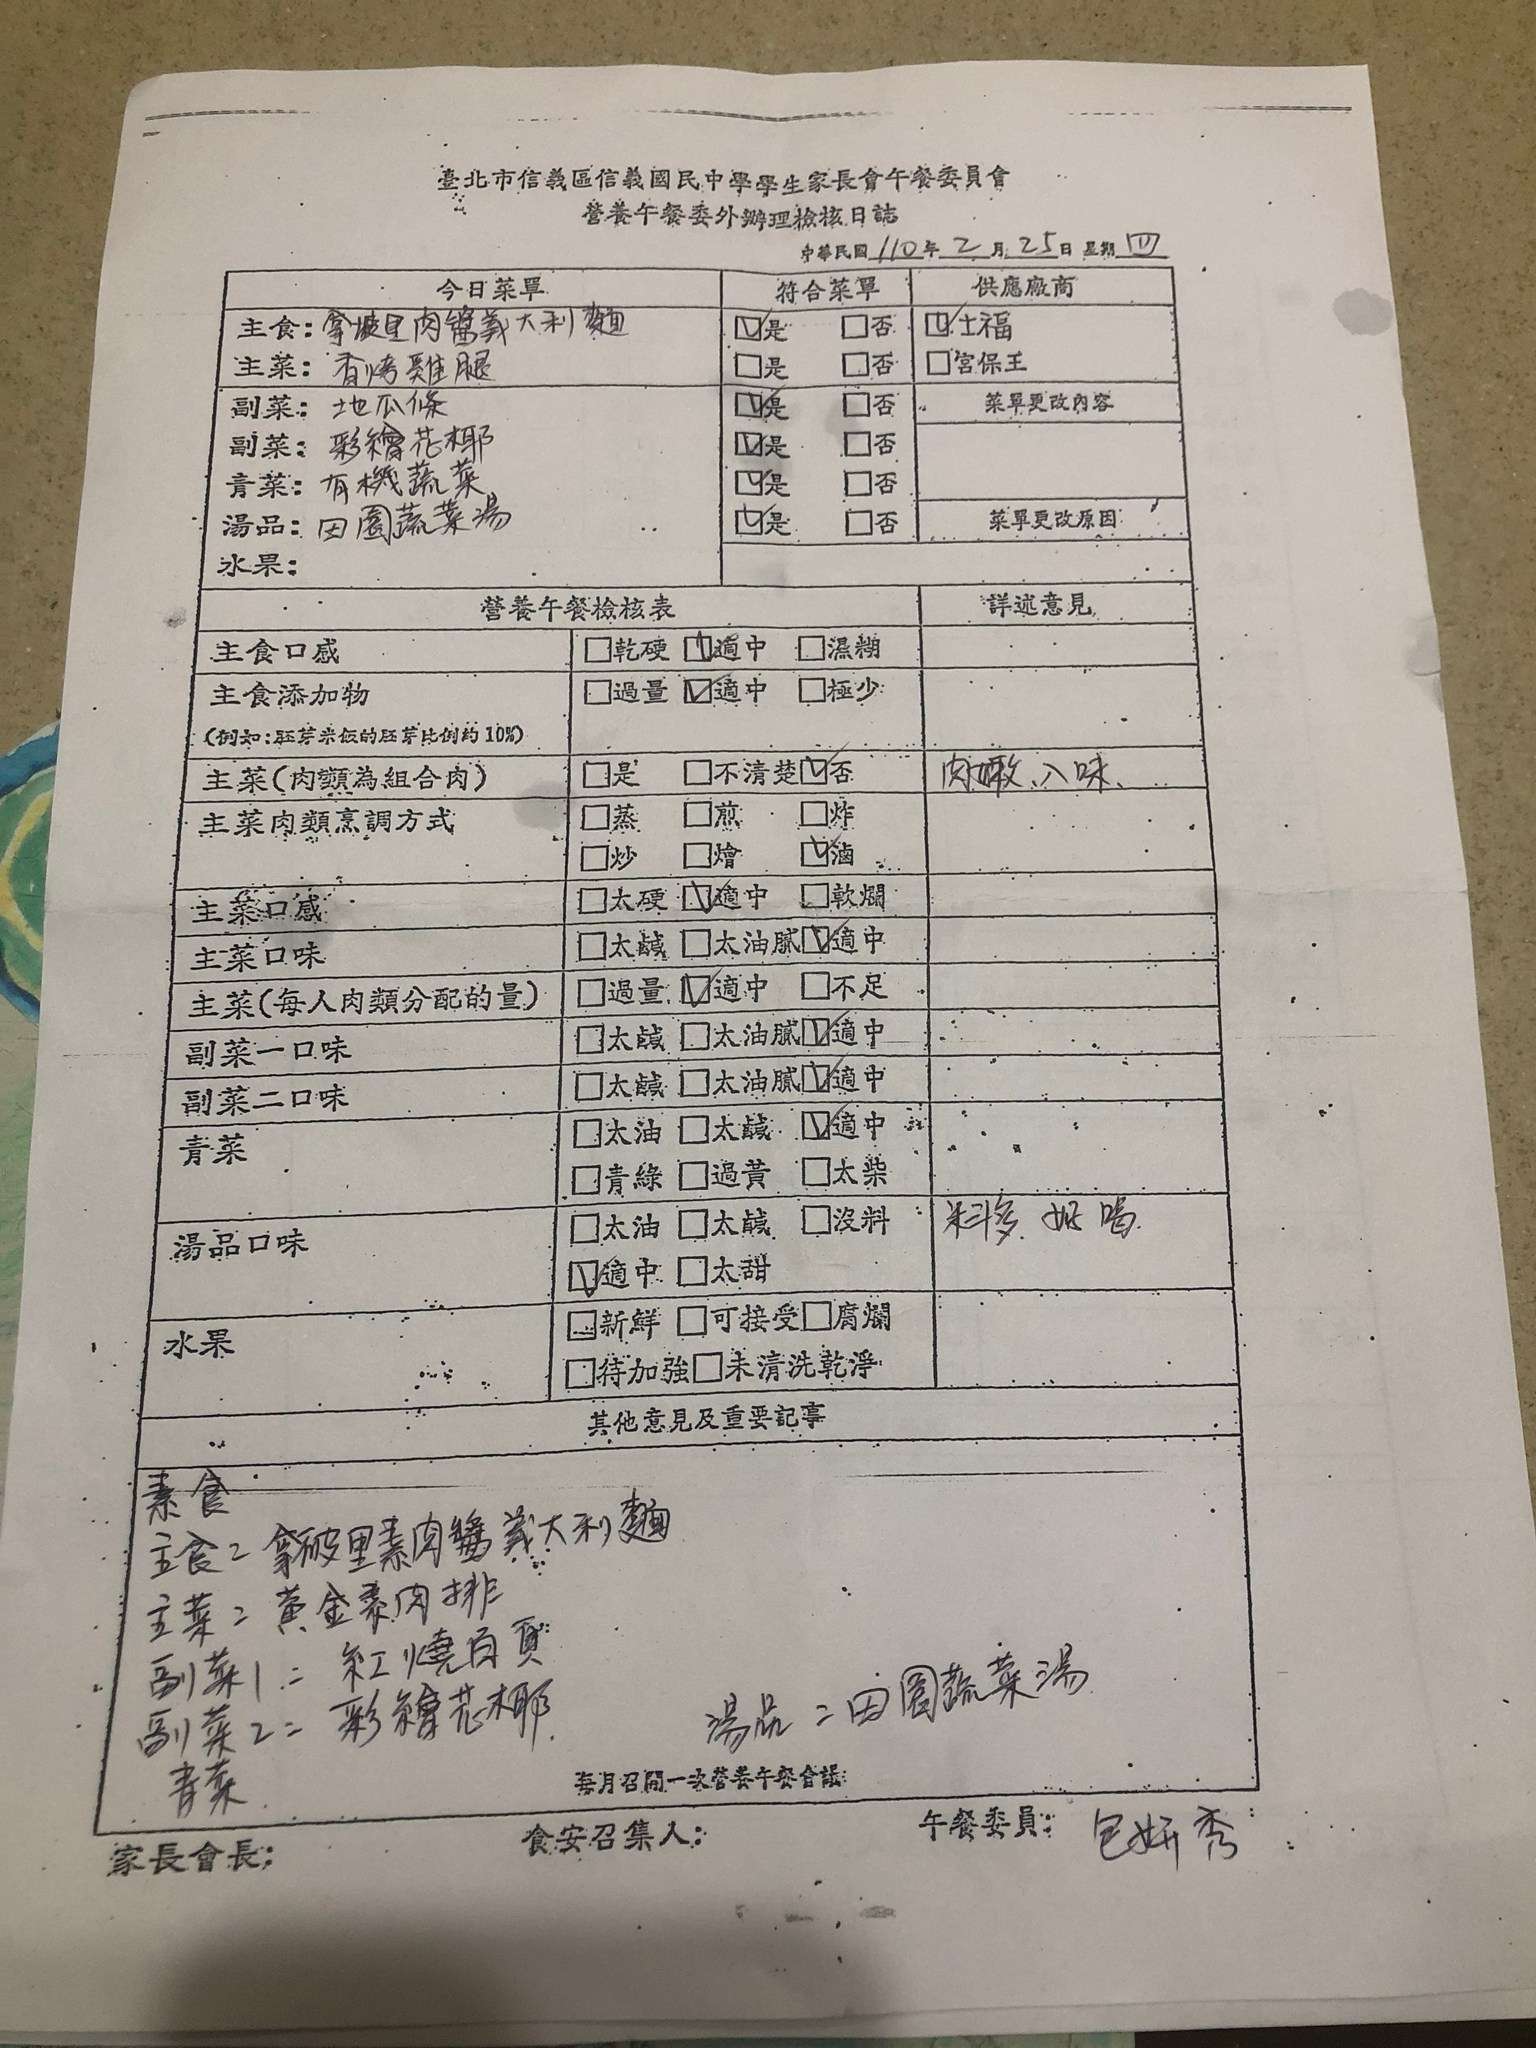 臺北市信義區信義國民中學學生家長會午餐委員會
營養午餐委外辦理檢核日誌
中華民國110年2月25日 星期四
今日菜單 符合菜單 供應廠商
主食:拿坡里肉醬義大利麵 ☑是 □否 ☑仕福
主菜:香烤雞腿 □是 □否 □宮保王
副菜:地瓜條 ☑是 □否 菜單更改內容
副菜:彩繪花椰 ☑是 □否
青菜:有機蔬菜 ☑是 □否
湯品:田園蔬菜湯 ☑是 □否 菜單更改原因
水果:
營養午餐檢核表 詳述意見
主食口感 □乾硬 ☑適中 □濕糊
主食添加物 □過量 ☑適中 □極少
(例如:胚芽米飯的胚芽比例約10%)
主菜(肉類為組合肉) □是 □不清楚 ☑否 肉嫩、入味、
主菜肉類烹調方式 □蒸 □煎 □炸
□炒 □燴 ☑滷
主菜口感 □太硬 ☑適中 □軟爛
主菜口味 □太鹹 □太油膩 ☑適中
主菜(每人肉類分配的量) □過量 ☑適中 □不足
副菜一口味 □太鹹 □太油膩 ☑適中
副菜二口味 □太鹹 □太油膩 ☑適中
青菜 □太油 □太鹹 ☑適中
□青綠 □過黃 □太柴
湯品口味 □太油 □太鹹 □沒料 料多、好喝
☑適中 □太甜
水果 □新鮮 □可接受 □腐爛
□待加強 □未清洗乾淨
其他意見及重要記事
素食
主食=拿破里素肉醬義大利麵
主菜=黃金素肉排
副菜1=紅燒百頁
副菜2=彩繪花椰 湯品=田園蔬菜湯
青菜
每月召開一次營養午餐會議
家長會長: 食安召集人: 午餐委員:包妍秀